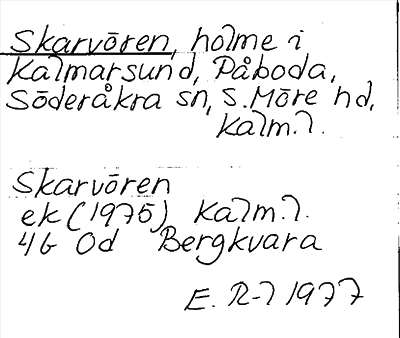 Skarvören, holme i
Kalmarsund, Påboda,
Söderåkra sn, S. Möre hd,
Kalm. l.
Skarvören
ek (1975) Kalm. l.
4G 0d Bergkvara
E. R-l 1977